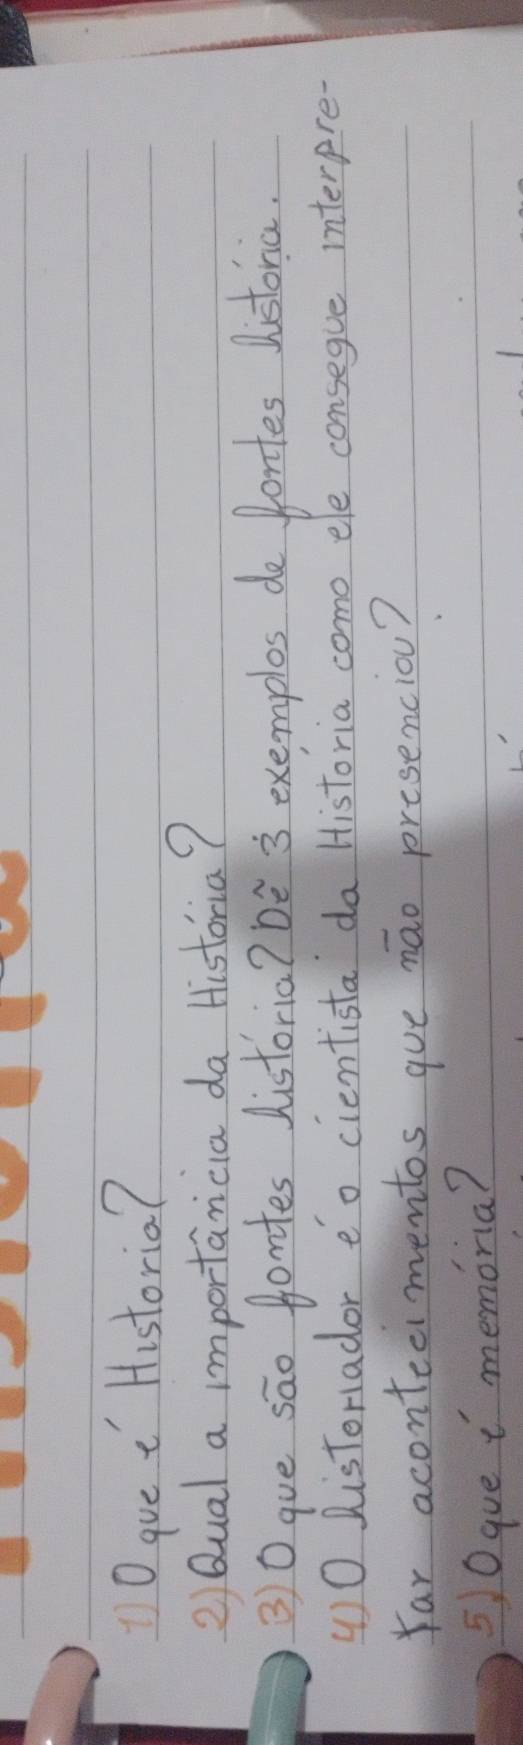 1) O que é Historia?
2) Qual a importância da História?
3) O que são fontes história? Dê 3 exemplos de fontes história.
4) O historiador é o cientista da História como ele consegue interpre-
tar acontecimentos que não presenciou?
5) O que é memória?